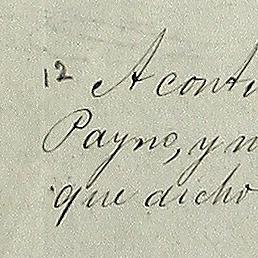 12 A conti
Payno, y n
que dicho